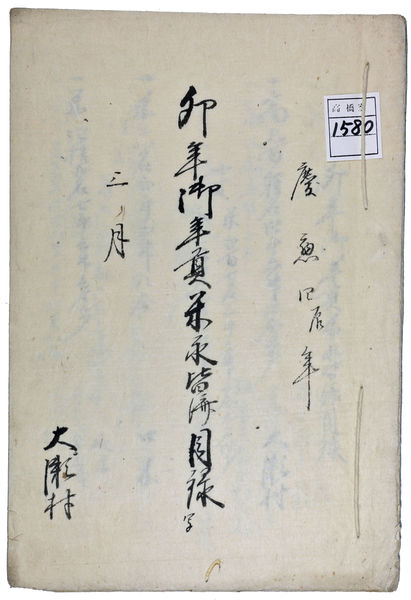 慶應四辰年
卯年御年貢米永皆済目録 写
三月
大瀬村
1580